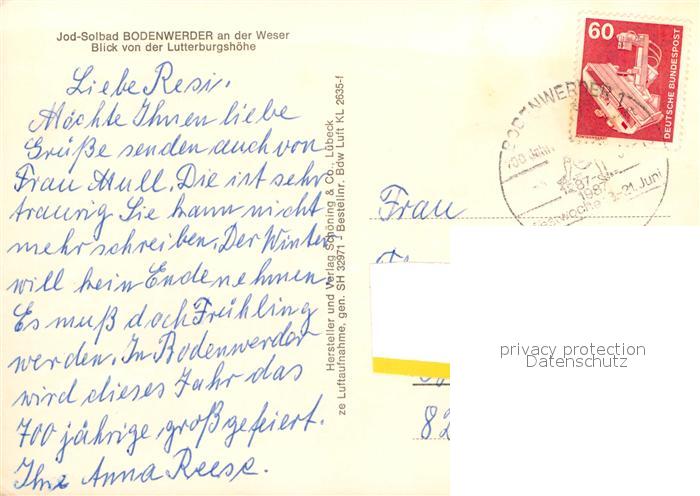 Jod-Solbad BODENWERDER an der Weser
Blick von der Lutterburgshöhe
Liebe Resi.
Möchte Ihnen liebe
Grüße senden auch von
Frau Mull. Die ist sehr
traurig Sie kann nicht
mehr schreiben. Der Winter
will kein Ende nehmen.
Es muß doch Frühling
werden. In Bodenwerder
wird dieses Jahr das
700 jährige großgefeiert.
Ihre Anna Reese.
Hersteller und Verlag Schöning & Co., Lübeck
ze Luftaufnahme, gen. SH 32971 - Bestellnr. Bdw Luft KL 2635-f
60
DEUTSCHE BUNDESPOST
BODENWERDER 1
700 Jahr
1287-
1987
Festwoche 13.-21. Juni
Frau
82
privacy protection
Datenschutz